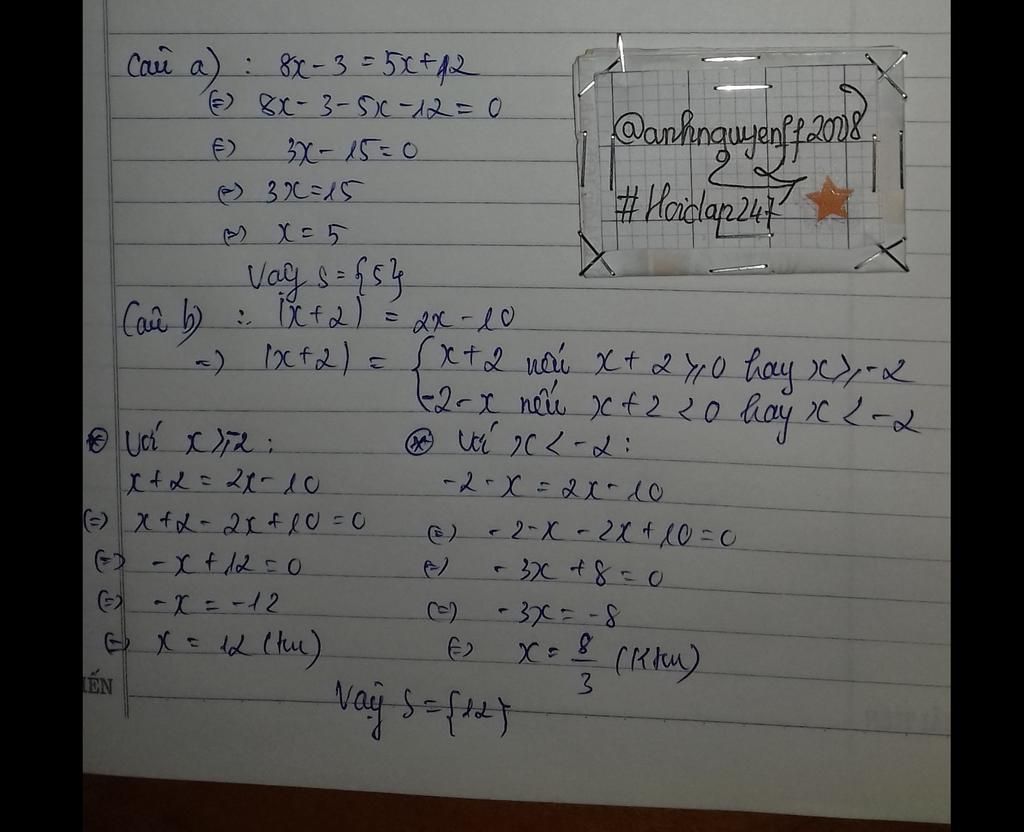 Câu a) : 8x - 3 = 5x + 12
(=) 8x - 3 - 5x - 12 = 0
(=) 3x - 15 = 0
(=) 3x = 15
(=) x = 5
Vậy S = {5}
@anhnguyenff2008
#Hoidap247
Câu b) : |x + 2| = 2x - 10
=) |x + 2| = { x + 2 nếu x + 2 ≥ 0 hay x ≥ -2
-2 - x nếu x + 2 < 0 hay x < -2
* Với x ≥ -2 :
x + 2 = 2x - 10
(=) x + 2 - 2x + 10 = 0
(=) -x + 12 = 0
(=) -x = -12
(=) x = 12 (tm)
* Với x < -2 :
-2 - x = 2x - 10
(=) -2 - x - 2x + 10 = 0
(=) -3x + 8 = 0
(=) -3x = -8
(=) x = 8/3 (Ktm)
Vậy S = {12}
IẾN